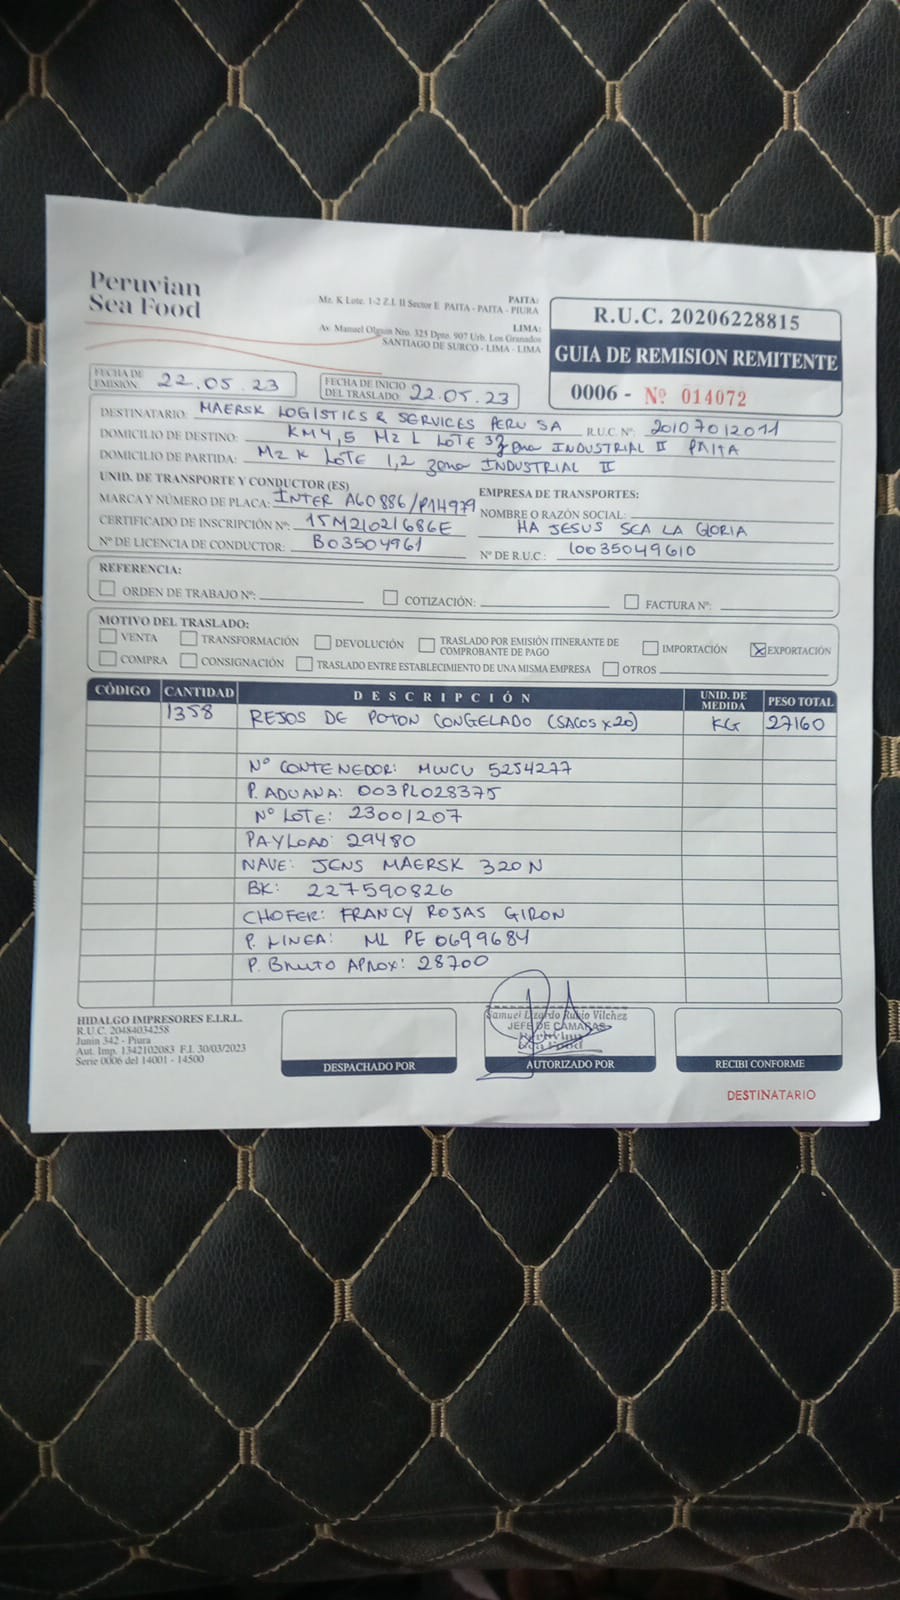 Peruvian
Sea Food
PAITA:
Mz. K Lote. 1-2 Z.I. II Sector E PAITA - PAITA - PIURA
LIMA:
Av. Manuel Olguin Nro. 325 Dpto. 907 Urb. Los Granados
SANTIAGO DE SURCO - LIMA - LIMA
R.U.C. 20206228815
GUIA DE REMISION REMITENTE
0006 - Nº 014072
FECHA DE EMISIÓN: 22.05.23
FECHA DE INICIO DEL TRASLADO: 22.05.23
DESTINATARIO: MAERSK LOGISTICS & SERVICES PERU SA R.U.C. Nº: 20107012011
DOMICILIO DE DESTINO: KM 4,5 MZ L LOTE 3 zona INDUSTRIAL II PAITA
DOMICILIO DE PARTIDA: MZ K LOTE 1,2 zona INDUSTRIAL II
UNID. DE TRANSPORTE Y CONDUCTOR (ES)
MARCA Y NÚMERO DE PLACA: INTER A60886/P1H979
CERTIFICADO DE INSCRIPCIÓN Nº: 15M21021686E
Nº DE LICENCIA DE CONDUCTOR: B03504961
EMPRESA DE TRANSPORTES:
NOMBRE O RAZÓN SOCIAL:
HA JESUS SEA LA GLORIA
Nº DE R.U.C: 10035049610
REFERENCIA:
ORDEN DE TRABAJO Nº: COTIZACIÓN: FACTURA Nº:
MOTIVO DEL TRASLADO:
VENTA TRANSFORMACIÓN DEVOLUCIÓN TRASLADO POR EMISIÓN ITINERANTE DE COMPROBANTE DE PAGO IMPORTACIÓN X EXPORTACIÓN
COMPRA CONSIGNACIÓN TRASLADO ENTRE ESTABLECIMIENTO DE UNA MISMA EMPRESA OTROS
CÓDIGO CANTIDAD DESCRIPCIÓN UNID. DE MEDIDA PESO TOTAL
1358 REJOS DE POTON CONGELADO (SACOS x20) KG 27160
Nº CONTENEDOR: MWCU 5254277
P. ADUANA: 003PL028375
Nº LOTE: 23001207
PAYLOAD: 29480
NAVE: JENS MAERSK 320N
BK: 227590826
CHOFER: FRANCY ROJAS GIRON
P. LINEA: ML PE 0699684
P. BRUTO APROX: 28700
HIDALGO IMPRESORES E.I.R.L.
R.U.C. 20484034258
Junin 342 - Piura
Aut. Imp. 1342102083 F.I. 30/03/2023
Serie 0006 del 14001 - 14500
DESPACHADO POR
Samuel Lizardo Rubio Vilchez
JEFE DE CAMARAS
Peruvian
Sea Food
AUTORIZADO POR
RECIBI CONFORME
DESTINATARIO